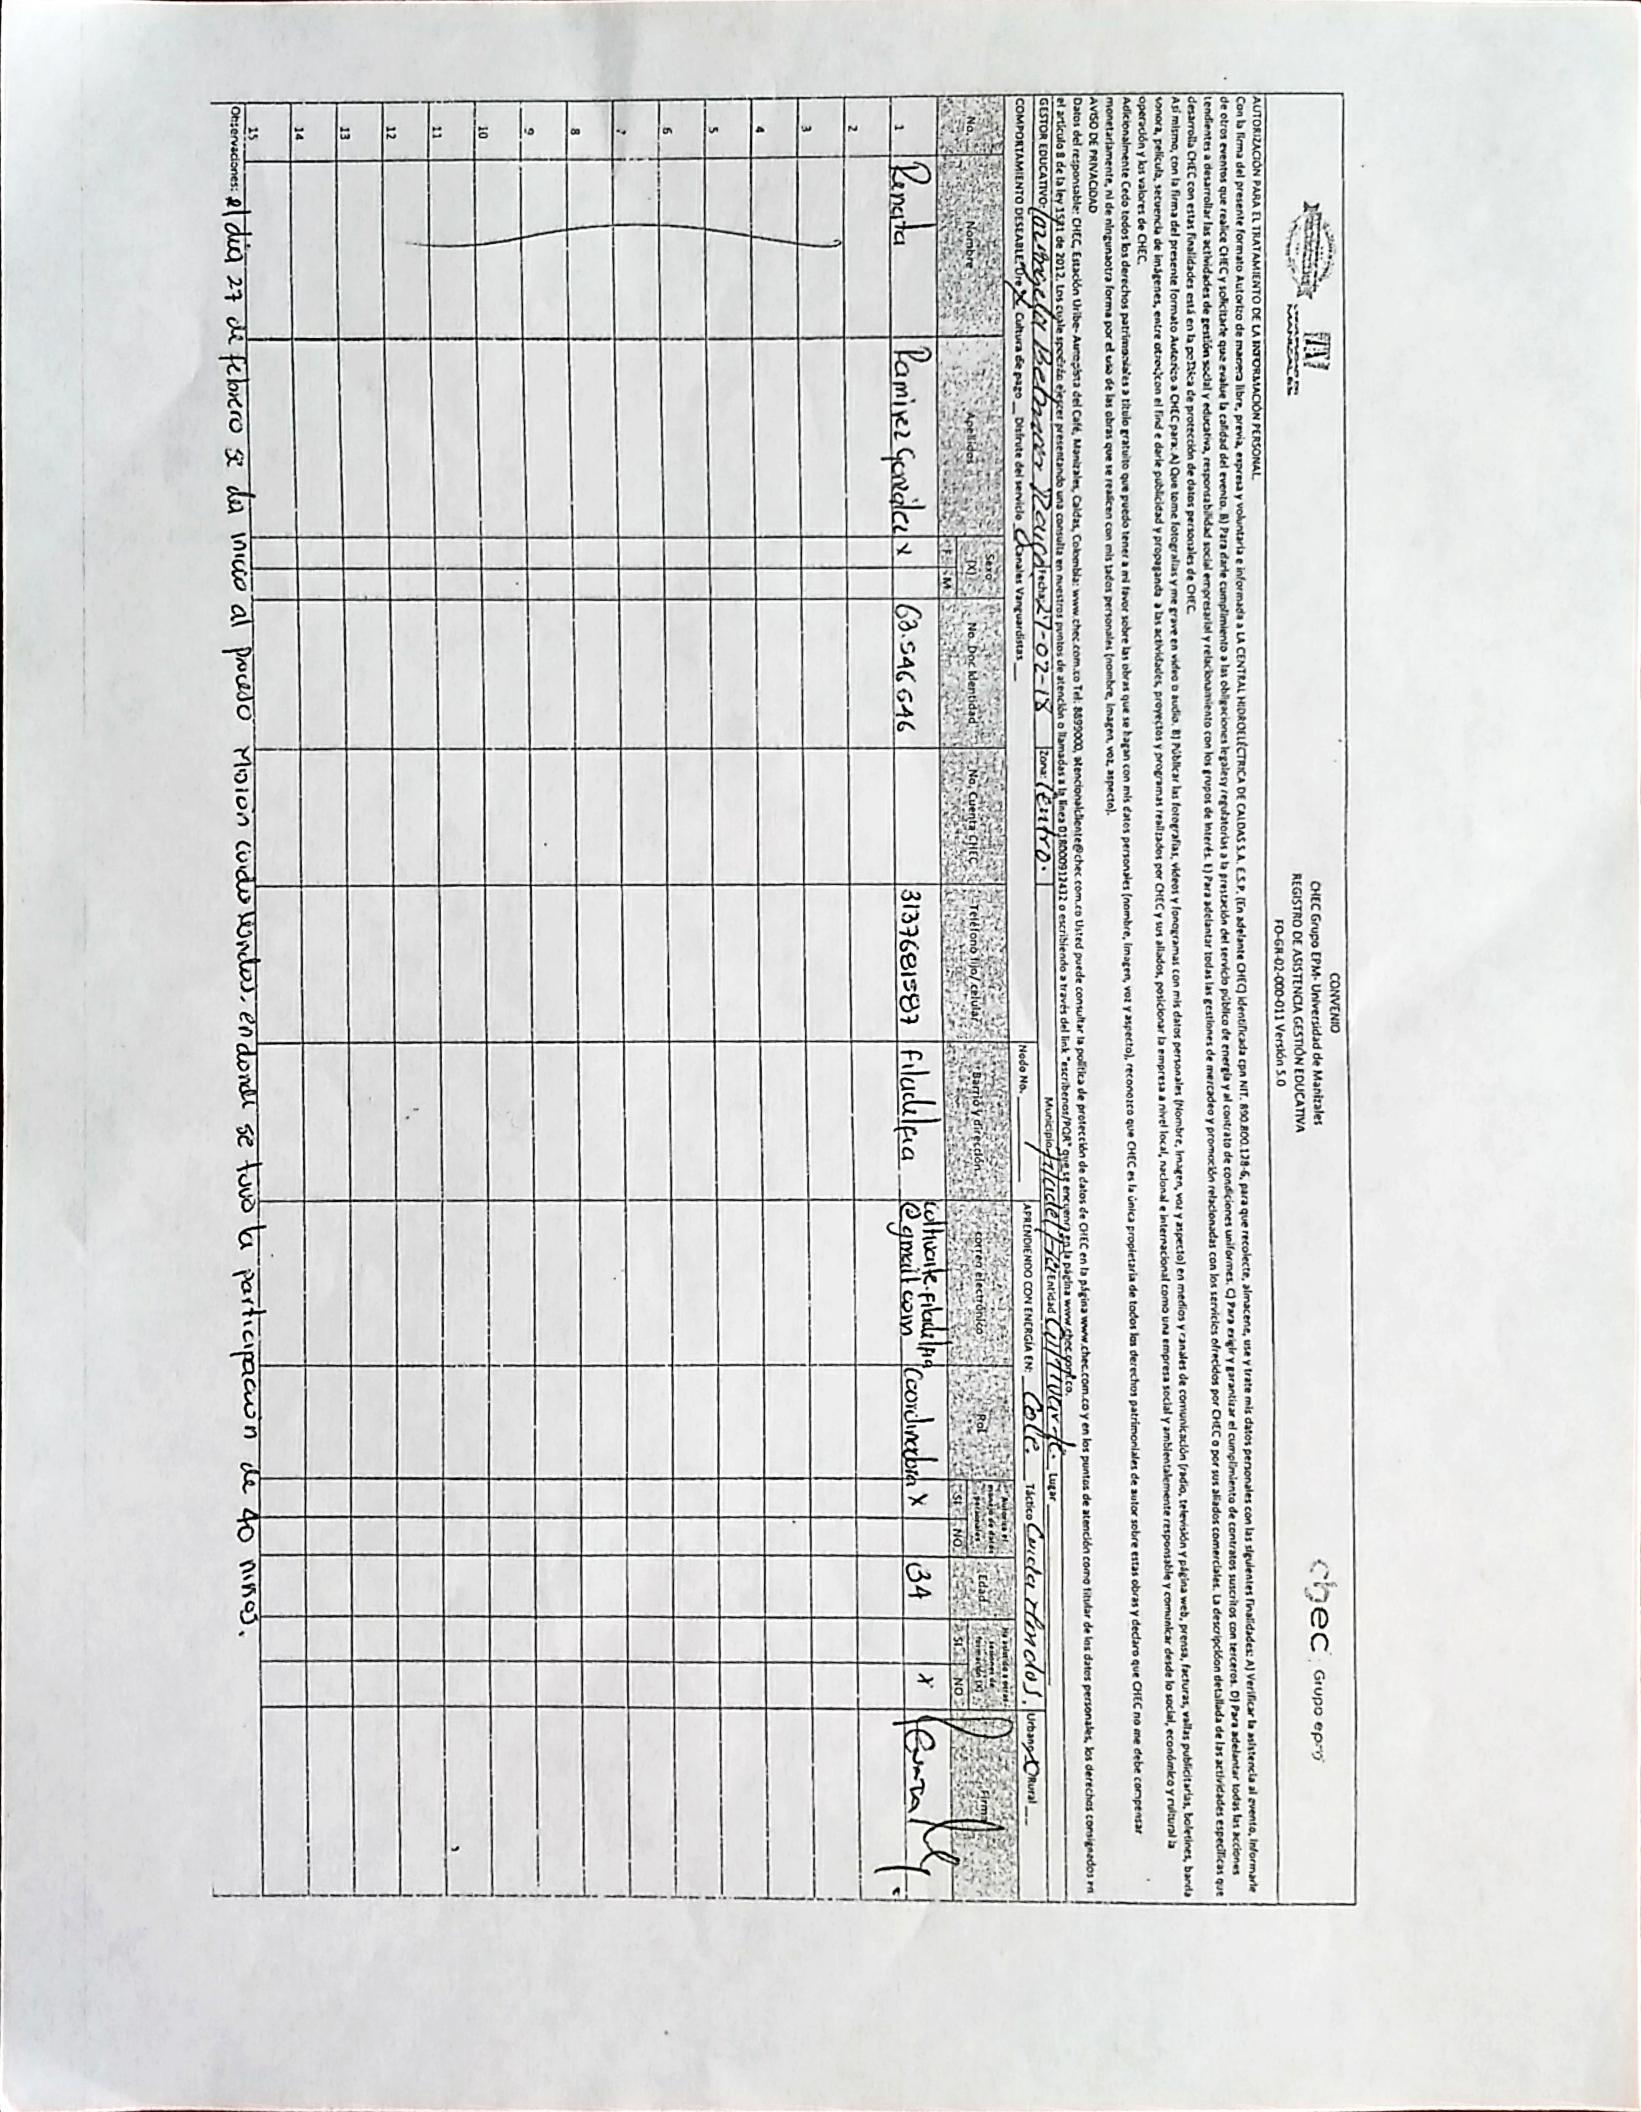 UNIVERSIDAD DE
MANIZALES
CONVENIO
CHEC Grupo EPM- Universidad de Manizales
REGISTRO DE ASISTENCIA GESTIÓN EDUCATIVA
FO-GR-02-000-011 Versión 5.0
chec Grupo epm
AUTORIZACIÓN PARA EL TRATAMIENTO DE LA INFORMACIÓN PERSONAL.
Con la firma del presente formato Autorizo de manera libre, previa, expresa y voluntaria e informada a LA CENTRAL HIDROELÉCTRICA DE CALDAS S.A. E.S.P. (En adelante CHEC) identificada con NIT. 890.800.128-6, para que recolecte, almacene, use y trate mis datos personales con las siguientes finalidades: A) Verificar la asistencia al evento, informarle
de otros eventos que realice CHEC y solicitarle que evalue la calidad del evento. B) Para darle cumplimiento a las obligaciones legales y regulatorias a la prestación del servicio público de energía y al contrato de condiciones uniformes. C) Para exigir y garantizar el cumplimiento de contratos suscritos con terceros. D) Para adelantar todas las acciones
tendientes a desarrollar las actividades de gestión social y educativa, responsabilidad social empresarial y relacionamiento con los grupos de interés. E) Para adelantar todas las gestiones de mercadeo y promoción relacionadas con los servicios ofrecidos por CHEC o por sus aliados comerciales. La descripción detallada de las actividades específicas que
desarrolla CHEC con estas finalidades está en la política de protección de datos personales de CHEC.
Así mismo, con la firma del presente formato Autorizo a CHEC para: A) Que tome fotografías y me grave en video o audio. B) Públicar las fotografías, videos y fonogramas con mis datos personales (Nombre, imagen, voz y aspecto) en medios y canales de comunicación (radio, televisión y página web, prensa, facturas, vallas publicitarias, boletines, banda
sonora, película, secuencia de imágenes, entre otros) con el find e darle publicidad y propaganda a las actividades, proyectos y programas realizados por CHEC y sus aliados, posicionar la empresa a nivel local, nacional e internacional como una empresa social y ambientalemente responsable y comunicar desde lo social, económico y cultural la
operación y los valores de CHEC.
Adicionalmente Cedo todos los derechos patrimoniales a título gratuito que puedo tener a mi favor sobre las obras que se hagan con mis datos personales (nombre, imagen, voz y aspecto), reconozco que CHEC es la única propietaria de todos los derechos patrimoniales de autor sobre estas obras y declaro que CHEC no me debe compensar
monetariamente, ni de ningunaotra forma por el uso de las obras que se realicen con mis tados personales (nombre, imagen, voz, aspecto).
AVISO DE PRIVACIDAD
Datos del responsable: CHEC, Estación Uribe- Autopista del Café, Manizales, Caldas, Colombia: www.chec.com.co Tel: 8899000, atencionalcliente@chec.com.co Usted puede consultar la política de protección de datos de CHEC en la página www.chec.com.co y en los puntos de atención como titular de los datos personales, los derechos consignados en
el artículo 8 de la ley 1581 de 2012. Los cuale spodrán ejercer presentando una consulta en nuestros puntos de atención o llamadas a la línea 018000912432 o escribiendo a través del link "escríbenos/PQR" que se encuentra en la página www.chec.com.co.
GESTOR EDUCATIVO: Betancur Fecha: 27-02-18 Zona: Centro. Municipio Filadelfia Entidad Cultivarte. Lugar
COMPORTAMIENTO DESEABLE: Ure X Cultura de pago __ Disfrute del servicio __ Canales Vanguardistas __ Nodo No. ____ APRENDIENDO CON ENERGÍA EN: Cole. Táctico Cuida Mundos. Urbano X Rural __
No. Nombre Apellidos Sexo (X) F M No. Doc Identidad No. Cuenta CHEC Teléfono fijo/celular Barrio y dirección correo electrónico Rol Autoriza el manejo de datos personales SI NO Edad Ha asistido a otras sesiones de formación (X) SI NO Firma
1 Renata Ramirez González X 63.546646 3137681587 Filadelfia cultivarte.filadelfia@gmail.com Coordinadora X 34 X
2
3
4
5
6
7
8
9
10
11
12
13
14
15
Observaciones: el día 27 de febrero se da inicio al proceso Misión cuida Mundos, en donde se tuvo la participación de 40 niños.